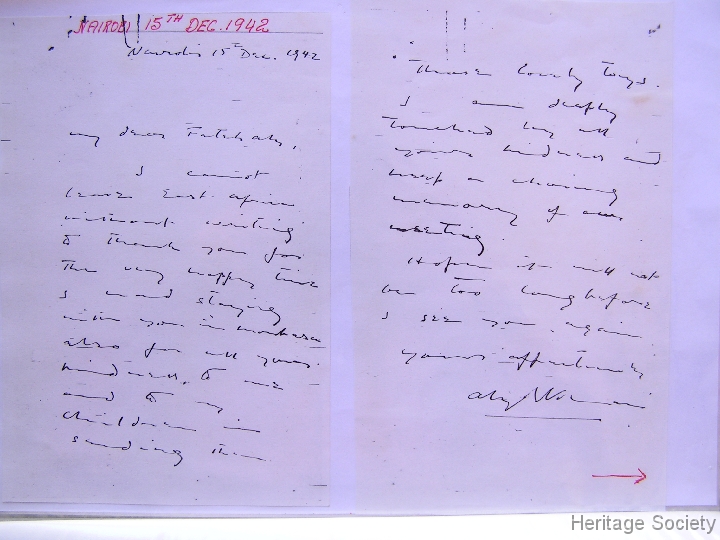 NAIROBI 15TH DEC. 1942
Nairobi 15th Dec. 1942
my dear Fatehali,
I cannot
leave East Africa
without writing
to thank you for
the very happy time
I had staying
with you in Mombasa
also for all your
kindness, to me
and to my
children in
sending them
those lovely toys.
I am deeply
touched by all
your kindness and
keep a charming
memory of our
meeting.
Hope it will not
be too long before
I see you again.
yours affectionately
Heritage Society